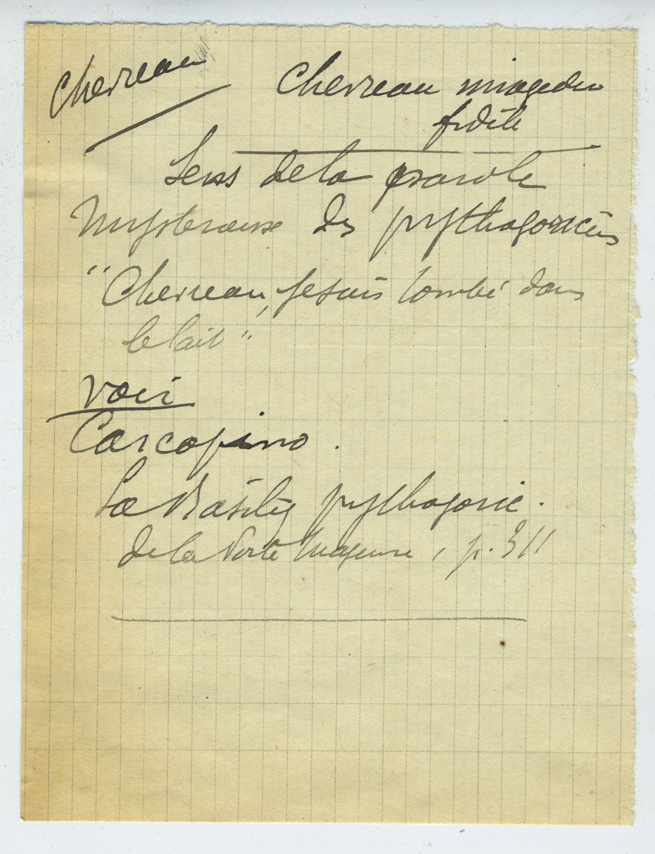 Chevreau
Chevreau image du
fidèle
Sens de la parole
mysterieuse des pythagoriciens
"Chevreau, je suis tombé dans
le lait"
voir
Carcopino.
La Basiliq pythagoric.
de la Porte Majeure, p. 311